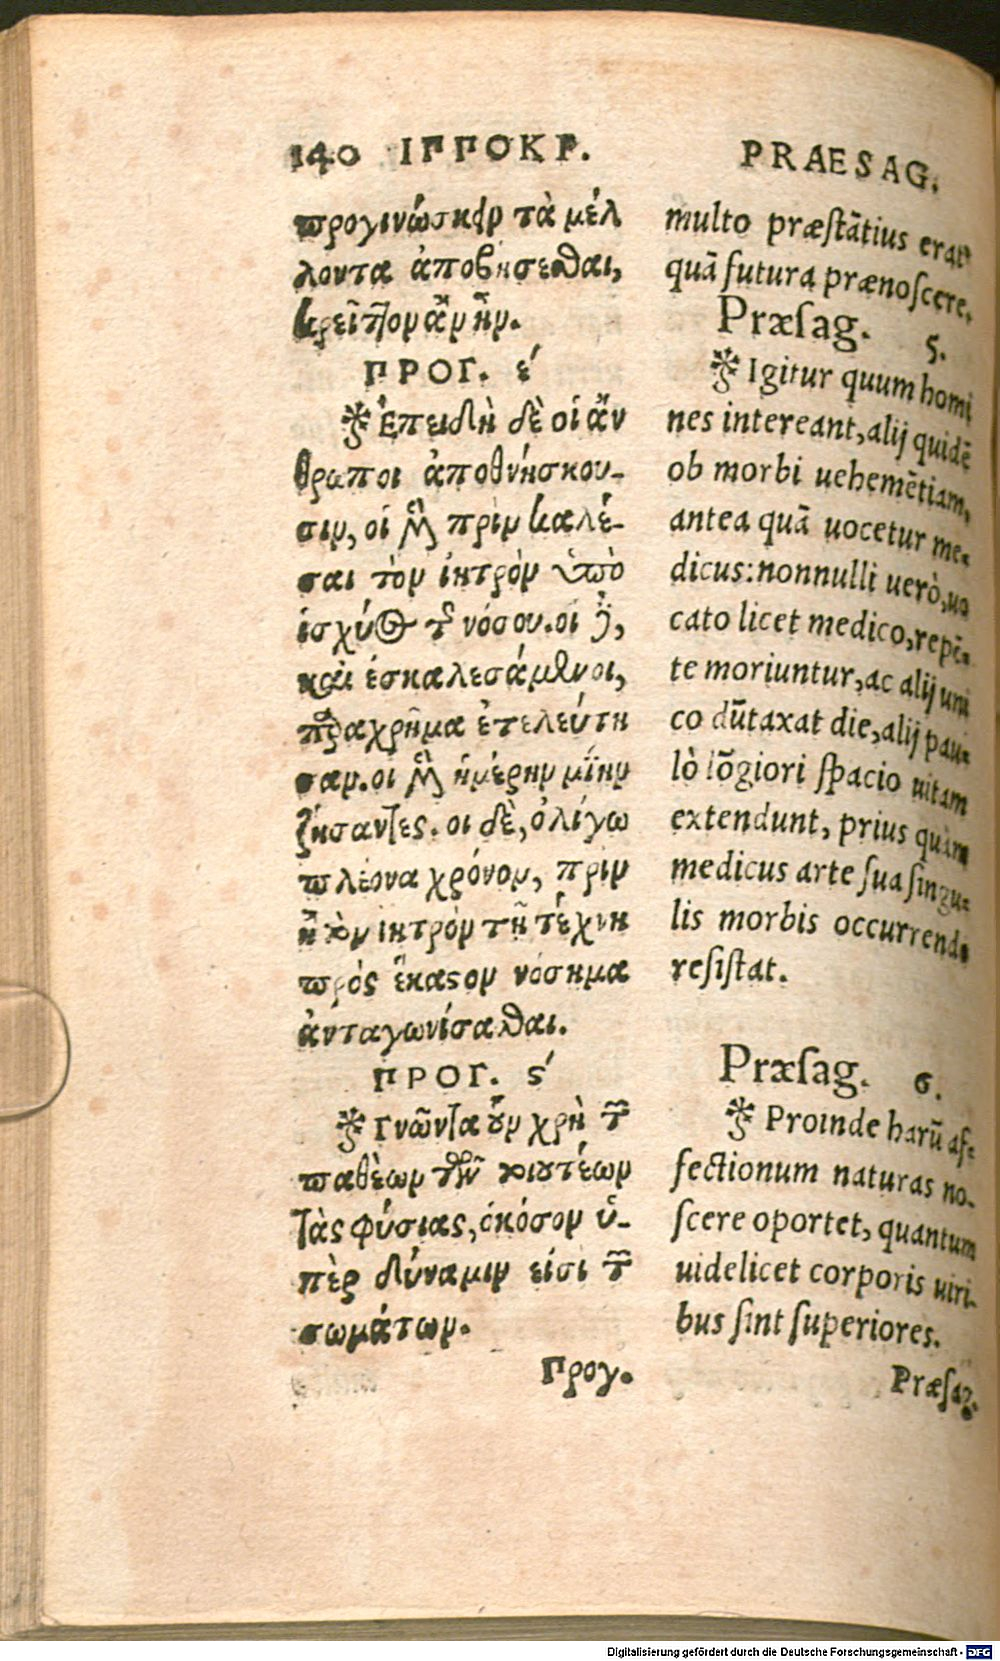 140 ΙΠΠΟΚΡ.
προγινώσκειν τὰ μέλ
λοντα ἀποβήσεσθαι,
κρεῖττον ἂν ἦν.
ΠΡΟΓ. ε΄
Ἐπειδὴ δὲ οἱ ἄν
θρωποι ἀποθνήσκου-
σιν, οἱ μὲν πρὶν καλέ-
σαι τὸν ἰητρὸν ὑπὸ
ἰσχύος τῆς νόσου. οἱ δὲ,
καὶ ἐσκαλεσάμενοι,
παραχρῆμα ἐτελεύτη
σαν. οἱ μὲν ἡμέρην μίην
ζήσαντες. οι δὲ, ὀλίγω
πλέονα χρόνον, πρὶν
ἢ τὸν ἰητρὸν τῇ τέχνη
πρὸς ἕκαστον νόσημα
ἀνταγωνίσασθαι.
ΠΡΟΓ. ς΄
Γνῶντα οὖν χρὴ τῶν
παθέων τῶν τοιουτέων
τὰς φύσιας, ὁκόσον ὑ-
πὲρ δύναμιν εἰσὶ τῶν
σωμάτων.
Προγ.
PRAESAG.
multo præstātius erat
quā futura prænoscere.
Præsag. 5.
Igitur quum homi
nes intereant, alij quidē
ob morbi uehemētiam,
antea quā uocetur me-
dicus: nonnulli uerò, uo
cato licet medico, repē-
te moriuntur, ac alij uni
co dūtaxat die, alij pau-
lò lōgiori spacio uitam
extendunt, prius quàm
medicus arte sua singu-
lis morbis occurrendo
resistat.
Præsag. 6.
Proinde harū af-
fectionum naturas no-
scere oportet, quantum
uidelicet corporis uiri-
bus sint superiores.
Præsag.
Digitalisierung gefördert durch die Deutsche Forschungsgemeinschaft - DFG